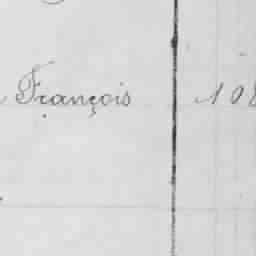 François 108